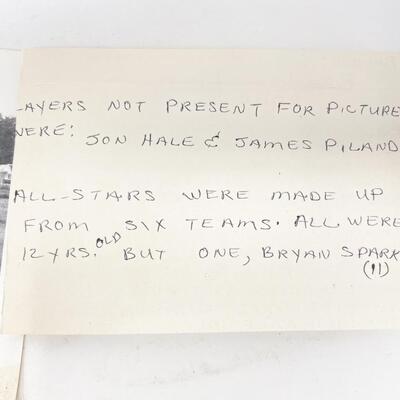 LAYERS NOT PRESENT FOR PICTURE
WERE: JON HALE & JAMES PILAND
ALL-STARS WERE MADE UP
FROM SIX TEAMS. ALL WERE
12 YRS. OLD BUT ONE, BRYAN SPARK
(11)